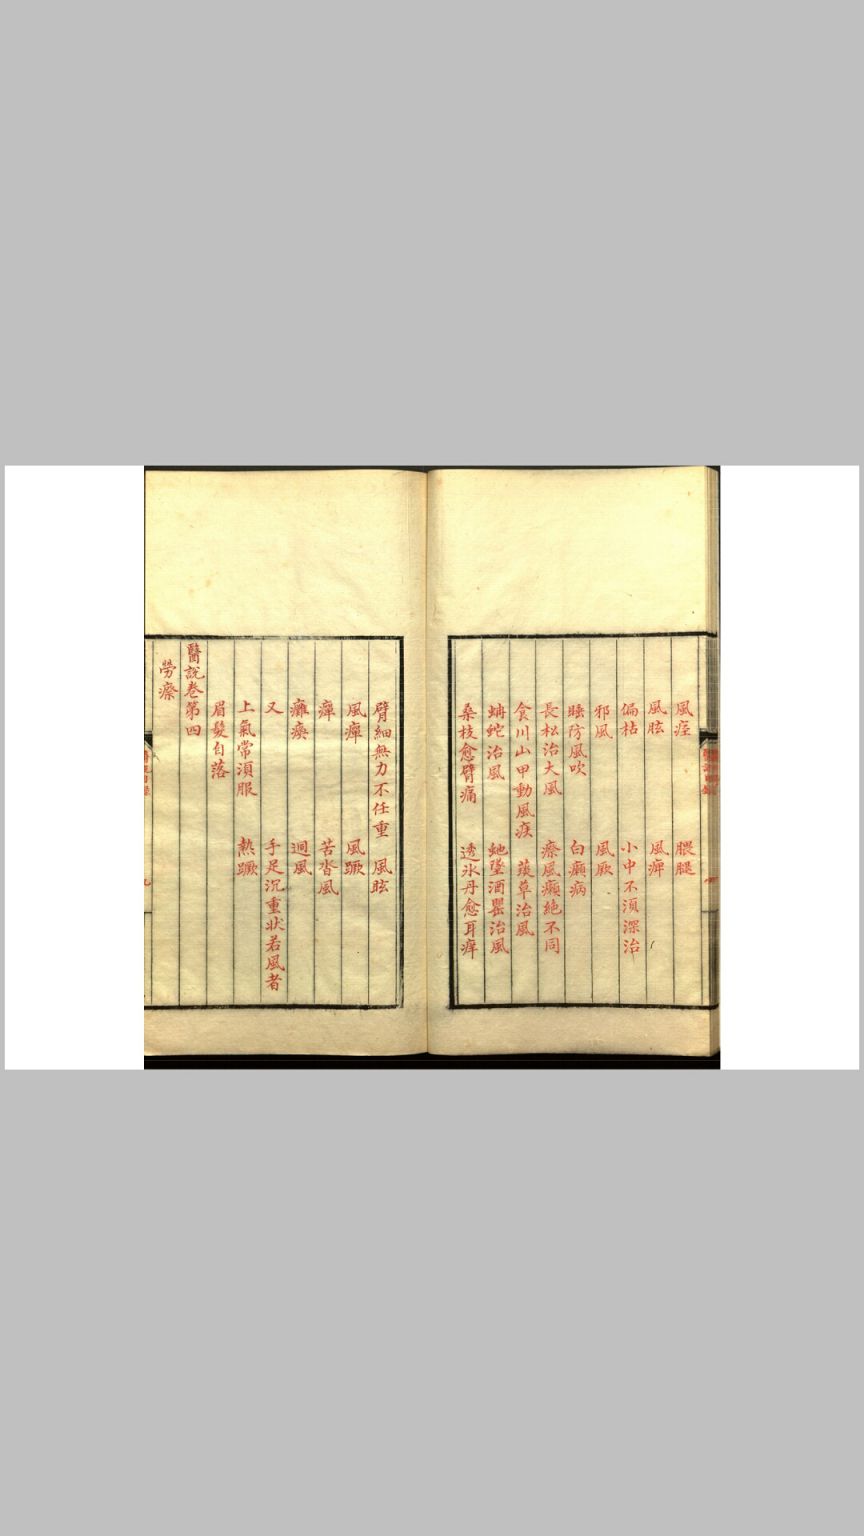 風痓 腲腿
風眩 風痺
偏枯 小中不須深治
邪風 風厥
睡防風吹 白癩病
長松治大風 療風癩絶不同
食川山甲動風疾 蒺草治風
蚺蛇治風 虵墜酒罌治風
桑枝愈臂痛 透氷丹愈耳痒
臂細無力不任重 風眩
風瘅 風蹶
瘅 苦沓風
癱瘓 迵風
又 手足沉重狀若風者
上氣常須服 熱蹶
眉髮自落
醫說卷第四
勞瘵